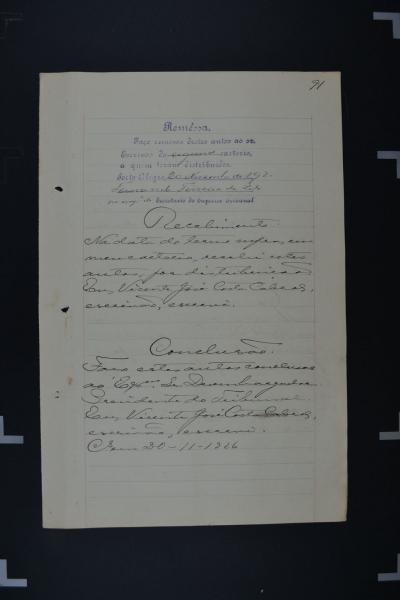 91
Remessa.
Faço remessa destes autos ao sr.
Escrivão do segundo cartorio,
a quem foram distribuidos.
Porto Alegre, 20 de
de
Secretario do Superior Tribunal
Recebimento.
Na data do termo supra, em
meu cartorio, recebi estes
autos, por distribuição.
Eu, Vicente José Costa Cabral,
escrivão, escrevi.
Conclusão.
Faço estes autos conclusos
ao Exmo. Sr. Desembargador
Presidente do Tribunal.
Eu, Vicente José Costa Cabral,
escrivão, escrevi.
20-11-